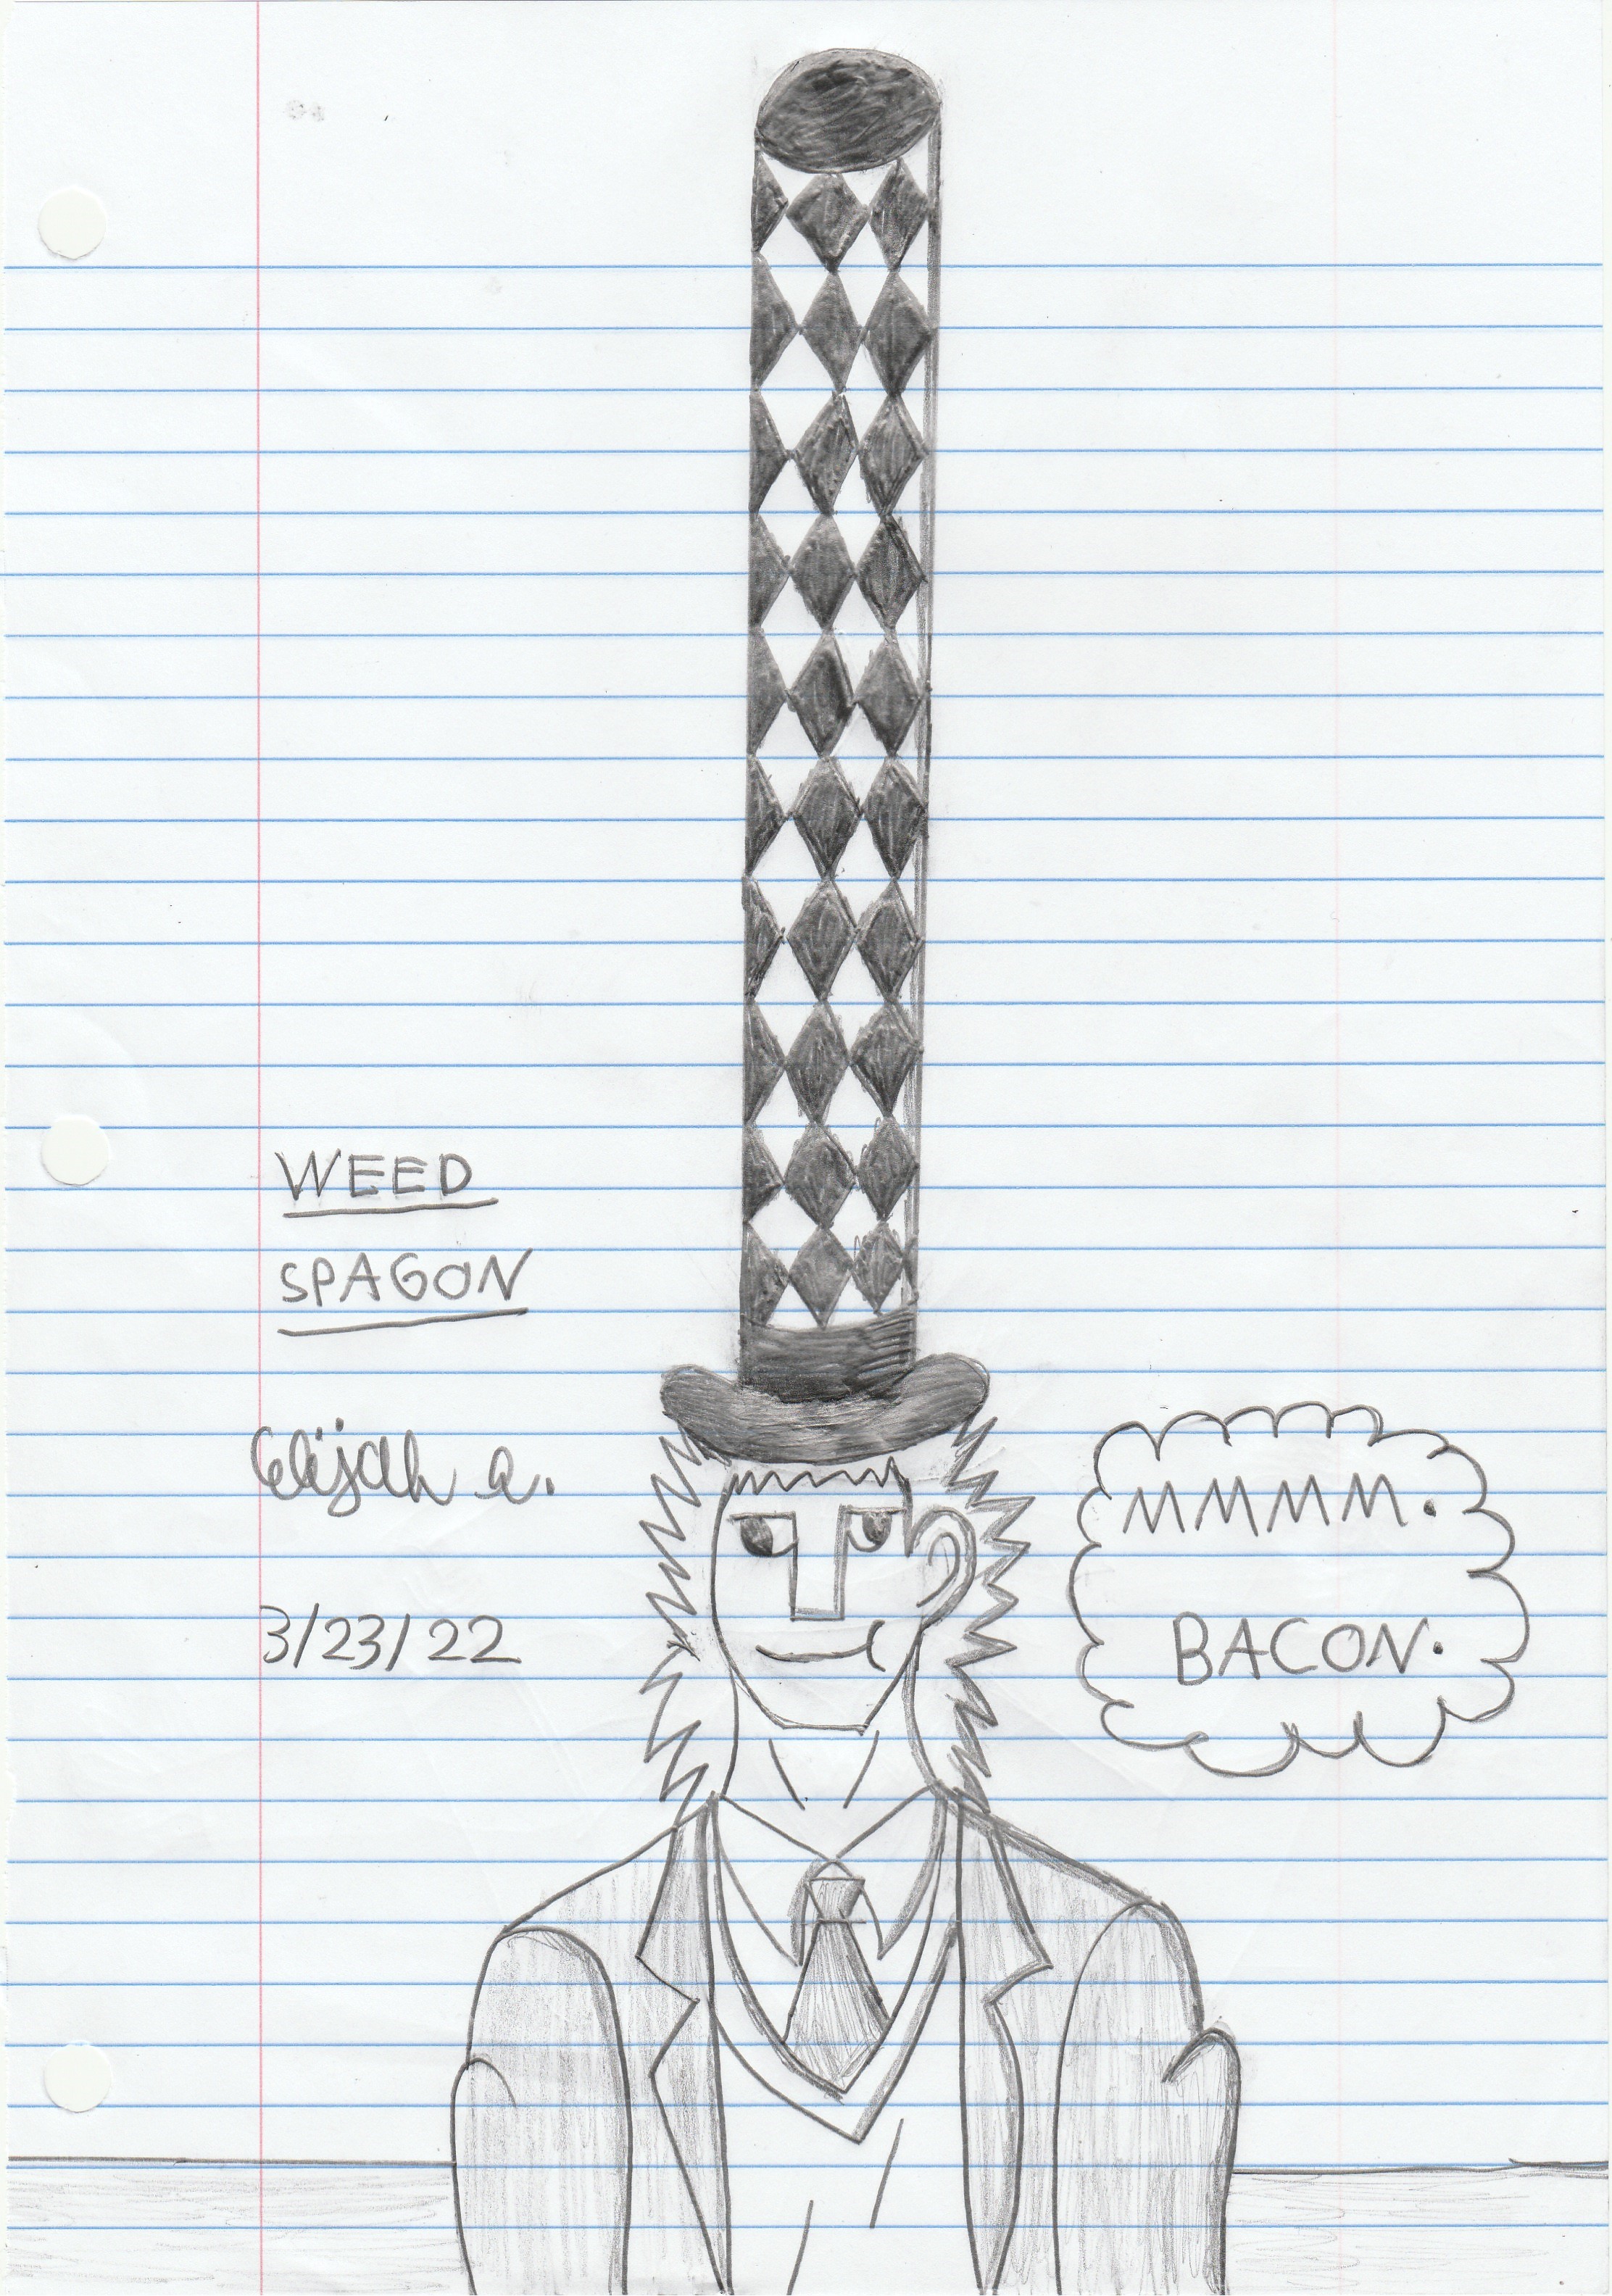 WEED
SPAGON
Elijah a.
3/23/22
MMMM.
BACON.